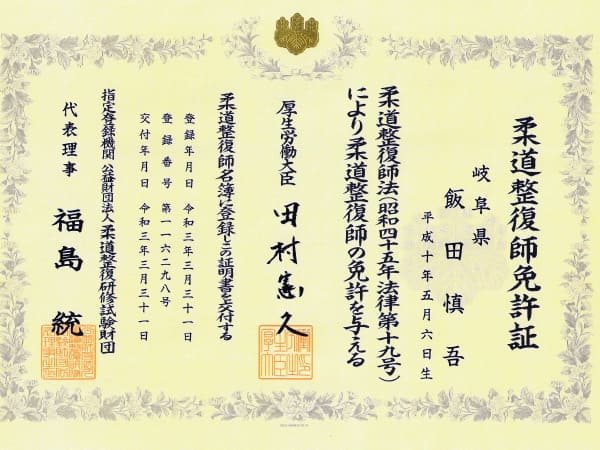 柔道整復師免許証
岐阜県
飯田慎吾
平成十年五月六日生
柔道整復師法(昭和四十五年法律第十九号)
により柔道整復師の免許を与える
厚生労働大臣 田村憲久
柔道整復師名簿に登録しこの証明書を交付する
登録年月日 令和三年三月三十一日
登録番号 第一一六二九八号
交付年月日 令和三年三月三十一日
指定登録機関 公益財団法人柔道整復研修試験財団
代表理事 福島統